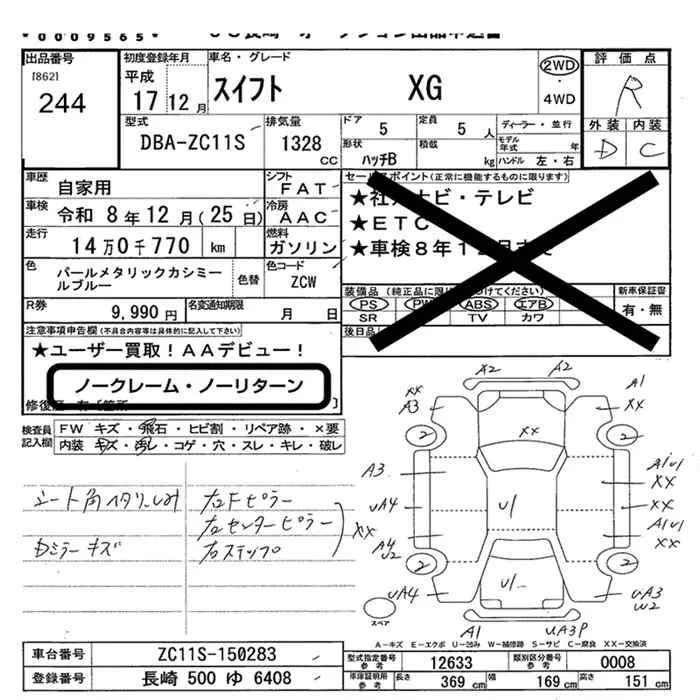 *0009565*
出品番号
[862]
244
初度登録年月
平成
17 12 月
車名・グレード
スイフト XG
2WD
・
4WD
評価点
R
外装 内装
D C
型式
DBA-ZC11S
排気量
1328
CC
ドア
5
定員
5 人
形状
ハッチB
積載
kg
ディーラー・並行
モデル年式 年
ハンドル 左・右
車歴
自家用
シフト
FAT
車検
令和 8年 12月(25日)
冷房
AAC
走行
14万0千770 km
燃料
ガソリン
色
パールメタリックカシミールブルー
色替
色コード
ZCW
R券
9,990円
名変通知期限
月 日
セールスポイント(正常に機能するものに限ります)
★社外ナビ・テレビ
★ETC
★車検8年12月まで
装備品
PS PW ABS エアB
SR TV カワ
新車保証書
有・無
後日品
注意事項申告欄(不具合内容等は具体的に記入して下さい)
★ユーザー買取!AAデビュー!
ノークレーム・ノーリターン
検査員記入欄
FW キズ・飛石・ヒビ割・リペア跡・×要
内装 キズ・汚レ・コゲ・穴・スレ・キレ・破レ
右Fピラー
右センターピラー
右ステップ
XX
ミラーキズ
A2 A2
XX A3
A1 XX
2 2
XX
A3
A1U1 XX
UA4
U1
XX
A4 U2
A1U1 XX
2 2
UA4
U1
UA3 W2
スペア
A1
UA3P
A-キズ E-エクボ U-凹み W-補修跡 S-サビ C-腐食 XX-交換済
車台番号
ZC11S-150283
登録番号
長崎 500 ゆ 6408
型式指定番号
参考
12633
類別区分番号
参考
0008
車庫証明用
参考
長さ
369 cm
幅
169 cm
高さ
151 cm